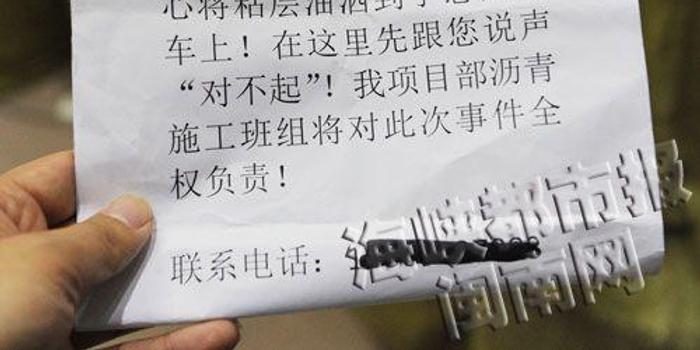 心将粘层油洒到了您
车上！在这里先跟您说声
“对不起”！我项目部沥青
施工班组将对此次事件全
权负责！
联系电话：
海峡都市报
闽南网